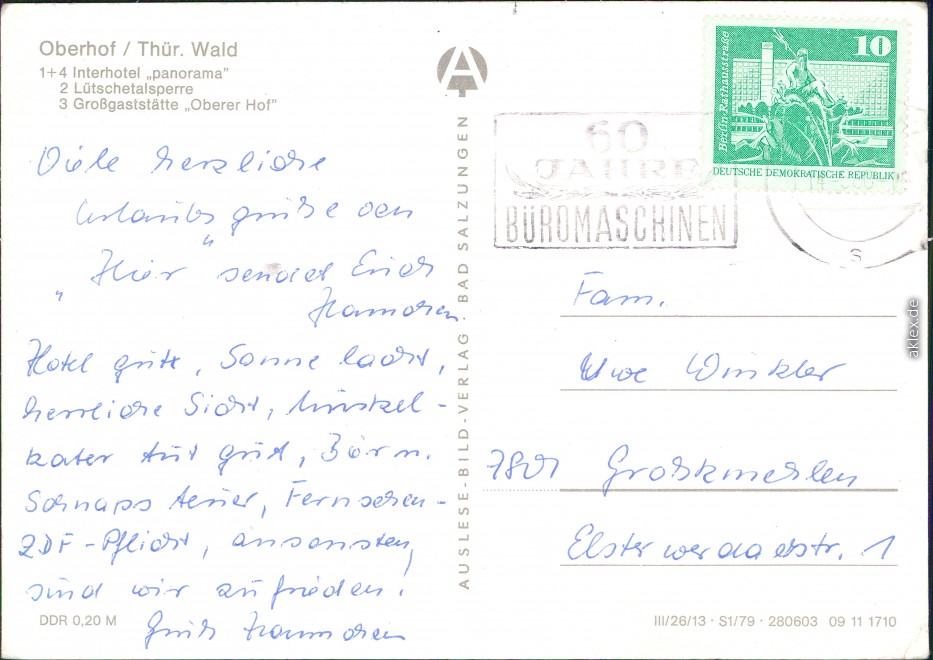 Oberhof / Thür. Wald
1+4 Interhotel „panorama“
2 Lütschetalsperre
3 Großgaststätte „Oberer Hof“
Viele herzliche
Urlaubsgrüße
„Hier sendet Euch
Hotel gut, Sonne lacht,
herrliche Sicht, Muskel-
kater tut gut, Bier n.
Schnaps teuer, Fernsehen-
ZDF-Pflicht, ansonsten,
sind wir zufrieden!
Gruß
DDR 0,20 M
AUSLESE-BILD-VERLAG BAD SALZUNGEN
60
JAHRE
BÜROMASCHINEN
Berlin, Rathausstraße
10
DEUTSCHE DEMOKRATISCHE REPUBLIK
S
Fam.
Uwe Winkler
7801 Großkmehlen
Elsterwerdaerstr. 1
III/26/13 · S1/79 · 280603 09 11 1710
aklex.de